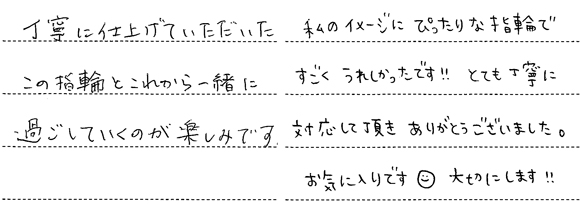 丁寧に仕上げていただいた
この指輪とこれから一緒に
過ごしていくのが楽しみです
私のイメージにぴったりな指輪で
すごくうれしかったです!! とても丁寧に
対応して頂きありがとうございました。
お気に入りです☺ 大切にします!!